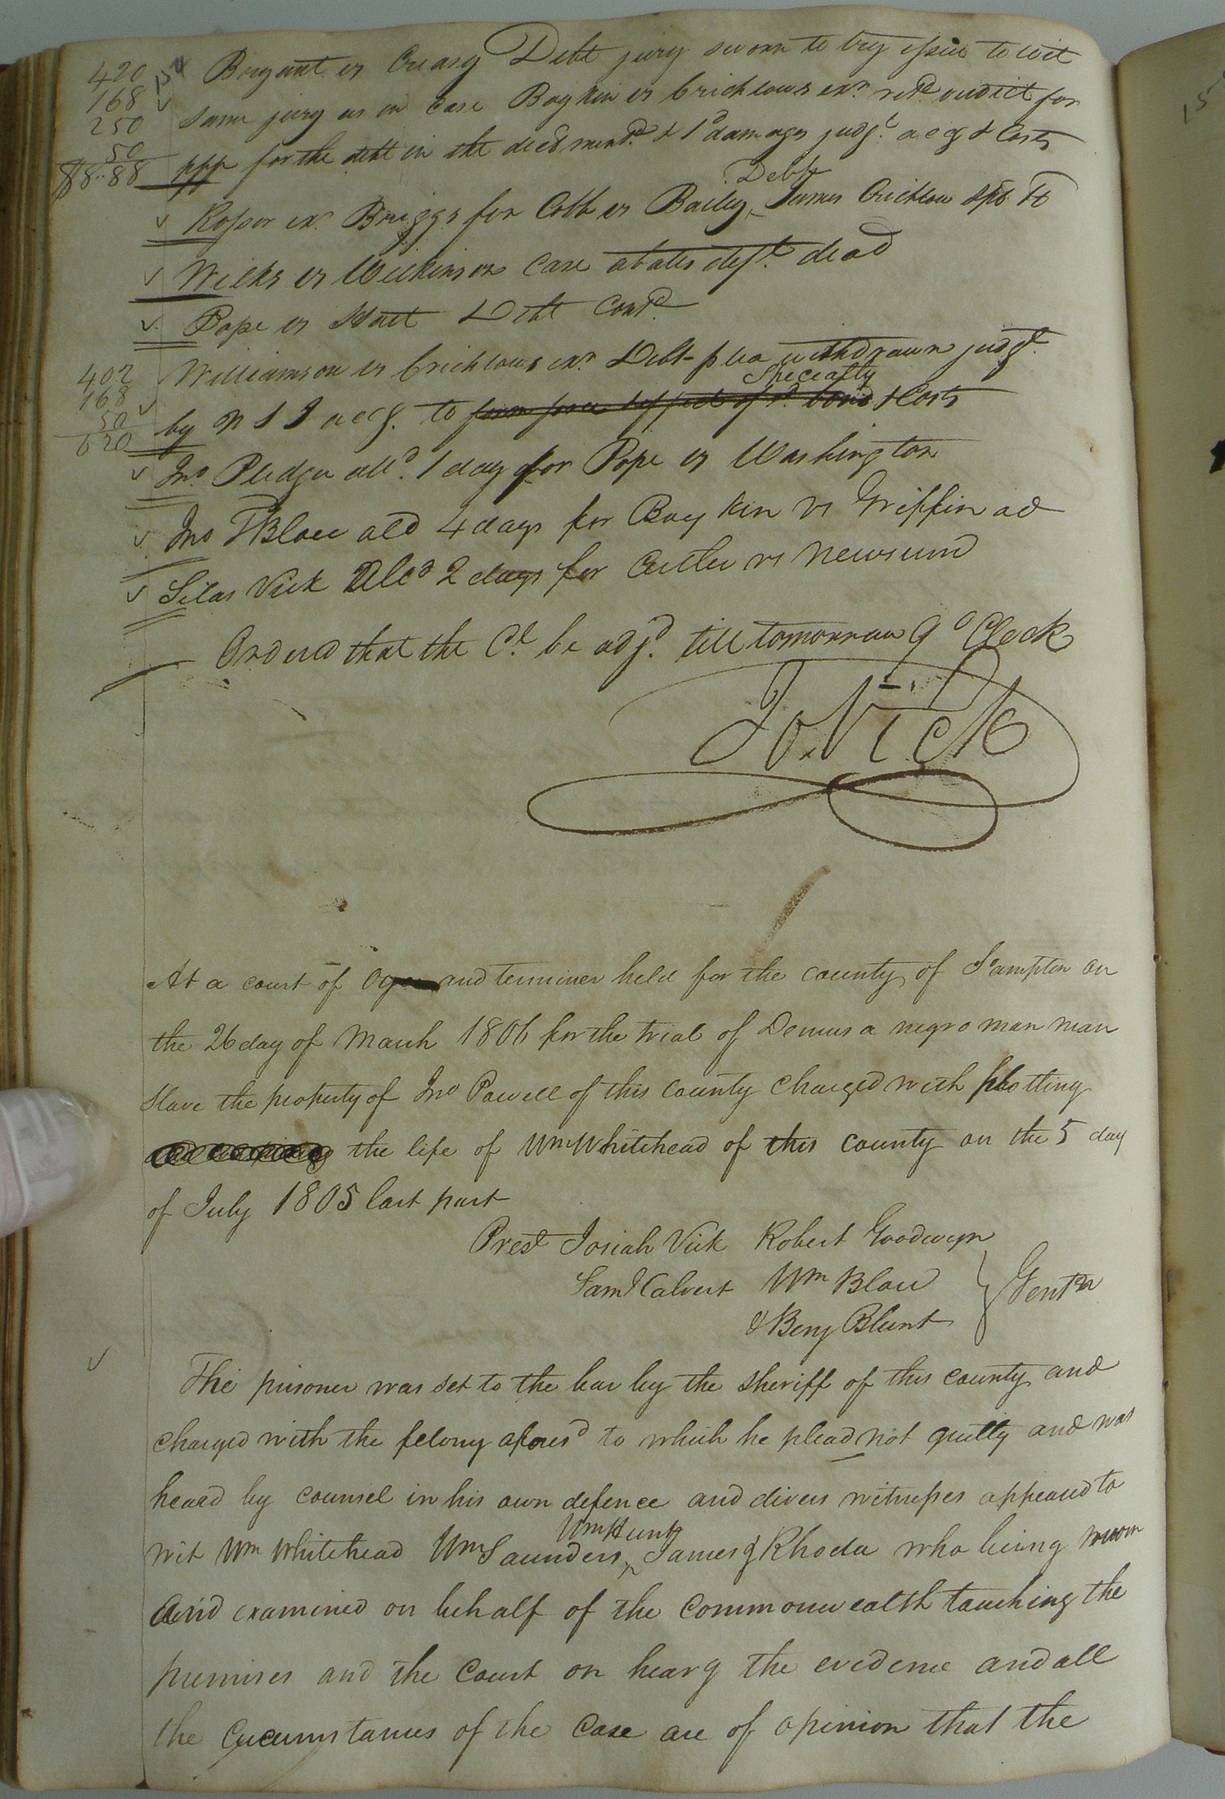 420
168
250
50
88..88
Bryant vs Creasy Debt jury sworn to try issue to wit
same jury as in case Boykin vs Crichlows exr retd verdict for
ppp for the debt in the decd mend. & 1d damages judgt accg & Costs
Debt
Rosser exr Briggs for Cobb vs Bailey, James Crichlow spb
Wilks vs Wilkinson Case abates deft. dead
Pope vs Hart Debt Contd
402
168
50
620
Williamson vs Crichlows exr Debt plea withdrawn judgt
Specialty
by N S I accg. to & Costs
Jno Pledger alld. 1 day for Pope vs Washington
Jno Blow ald 4 days for Boykin vs Griffin ad
Silas Vick alld 2 days for Cutler vs Newsum
Ordered that the Ct. be adjd. till tomorrow 9 o Clock
Jo. Vick
At a court of Oyer and terminer held for the county of So ampton on
the 26 day of March 1806 for the trial of Demus a negro man man
slave the property of Jno Powell of this county charged with plotting
the life of Wm Whitehead of this county on the 5 day
of July 1805 last past
Prest Josiah Vick Robert Goodwyn
Saml Calvert Wm Blow Gentn
& Benj Blunt
The prisoner was set to the bar by the sheriff of this county and
charged with the felony afores'd to which he plead not guilty and was
heard by counsel in his own defence and divers witnesses appeared to
Wm Hunt
wit Wm Whitehead Wm Saunders, James & Rhoda who being sworn
and examined on behalf of the commonwealth touching the
premises and the Court on hearg the evidence and all
the Circumstances of the case are of opinion that the